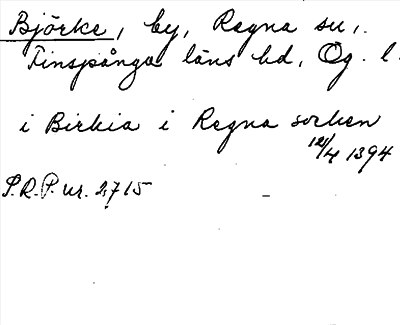 Björke, by, Regna sn,
Finspånga läns hd, Ög. l.
i Birkia i Regna sorken
12/4 1394
P.R.P. nr. 2715